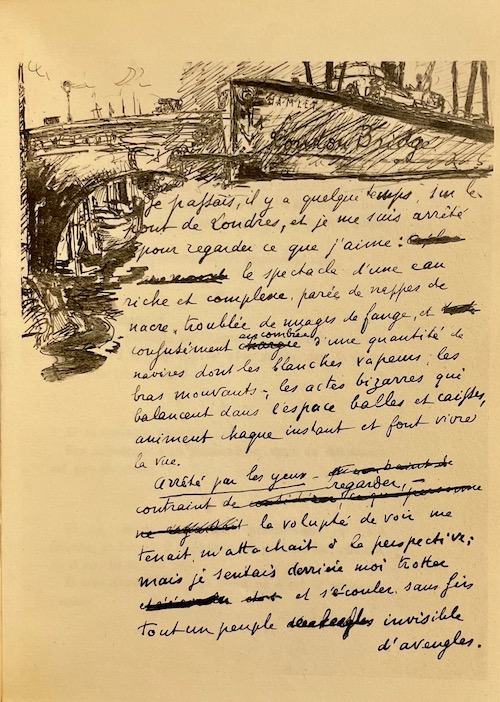 HAMLET
London Bridge
Je passais, il y a quelque temps, sur le
pont de Londres, et je me suis arrêté
pour regarder ce que j'aime :
le spectacle d'une eau
riche et complexe, parée de nappes de
nacre, troublée de nuages de fange, et
confusément encombrée d'une quantité de
chargée
navires dont les blanches vapeurs, les
bras mouvants, les actes bizarres qui
balancent dans l'espace balles et caisses,
animent chaque instant et font vivre
la vue.
Arrêté par les yeux -
contraint de regarder,
la volupté de voir me
tenait, m'attachait à la perspective ;
mais je sentais derrière moi trotter
et s'écouler sans fin
tout un peuple invisible
d'aveugles.